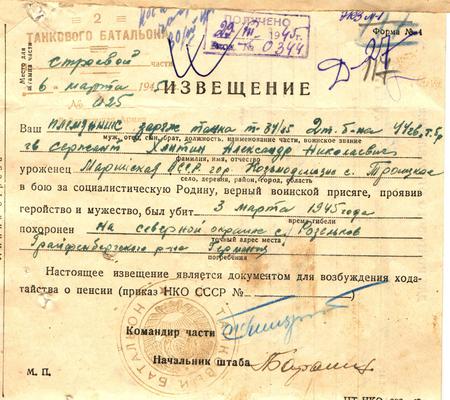 2
ТАНКОВОГО БАТАЛЬОНА
ПОЛУЧЕНО
1945 г.
0344
Форма № 4
Место для штампа части
строевой части
6 марта 1945
№ 025
ИЗВЕЩЕНИЕ
Ваш племянник заряж. танка Т-34/85 2 т. б-на
муж, отец, сын, брат, должность, наименование части, воинское звание
гв сержант Александр Николаевич
фамилия, имя, отчество
уроженец Марийская АССР гор. Козьмодемьянск с. Троицкое
село, деревня, район, город, область
в бою за социалистическую Родину, верный воинской присяге, проявив
геройство и мужество, был убит 3 марта 1945 года
время гибели
похоронен На северной окраине с. Розенков
точный адрес места
Грайфенбергского р-на Германия
погребения
Настоящее извещение является документом для возбуждения хода-
тайства о пенсии (приказ НКО СССР №
Командир части
Начальник штаба
М. П.